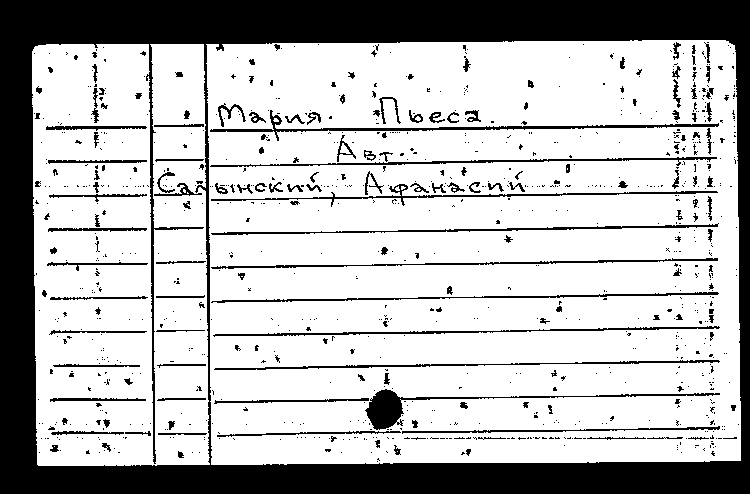 Мария. Пьеса.
Авт.:
Салынский, Афанасий